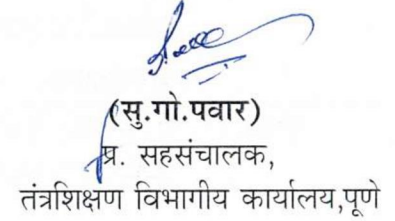 (सु.गो.पवार)
प्र. सहसंचालक,
तंत्रशिक्षण विभागीय कार्यालय,पूणे